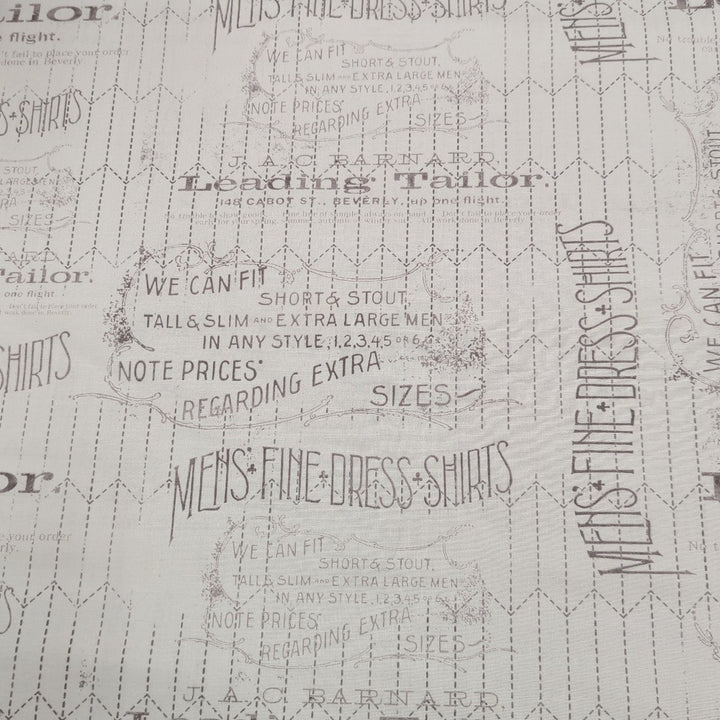 ilor.
MENS' FINE DRESS SHIRTS
MENS'
L
e flight.
't fail to place your order
done in Beverly
No trouble
WE CAN FIT
SHORT & STOUT,
TALL & SLIM AND EXTRA LARGE MEN
IN ANY STYLE, 1,2,3,4,5 OR 6,
NOTE PRICES
REGARDING EXTRA
SIZES
S SHIRTS
STOUT,
LARGE MEN
SIZES
J. A. C. BARNARD.
Leading Tailor.
148 CABOT ST., BEVERLY, up one flight.
Don't fail to place your order
Tailor.
one flight.
Don't fail to place your order
work done in Beverly.
WE CAN FIT
SHORT & STOUT,
TALL & SLIM AND EXTRA LARGE MEN
IN ANY STYLE, 1,2,3,4,5 OR 6,
NOTE PRICES
REGARDING EXTRA
SIZES
MENS' FINE DRESS SHIRTS
WE CAN FIT
SHORT & STOUT,
SHIRTS
MENS' FINE DRESS SHIRTS
or.
your order
rly.
No t
WE CAN FIT
SHORT & STOUT,
TALL & SLIM AND EXTRA LARGE MEN
IN ANY STYLE, 1,2,3,4,5 OR 6,
NOTE PRICES
REGARDING EXTRA
SIZES
J. A. C. BARNARD.
Leading Tailor.